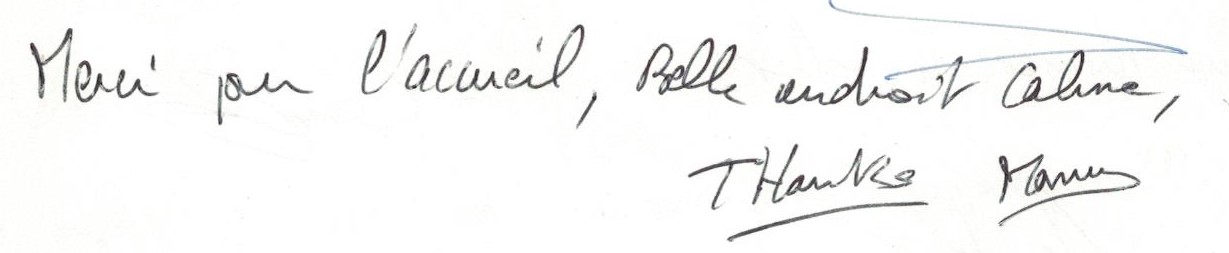 Merci pour l'accueil, Belle androit Calme,
THanks Manu